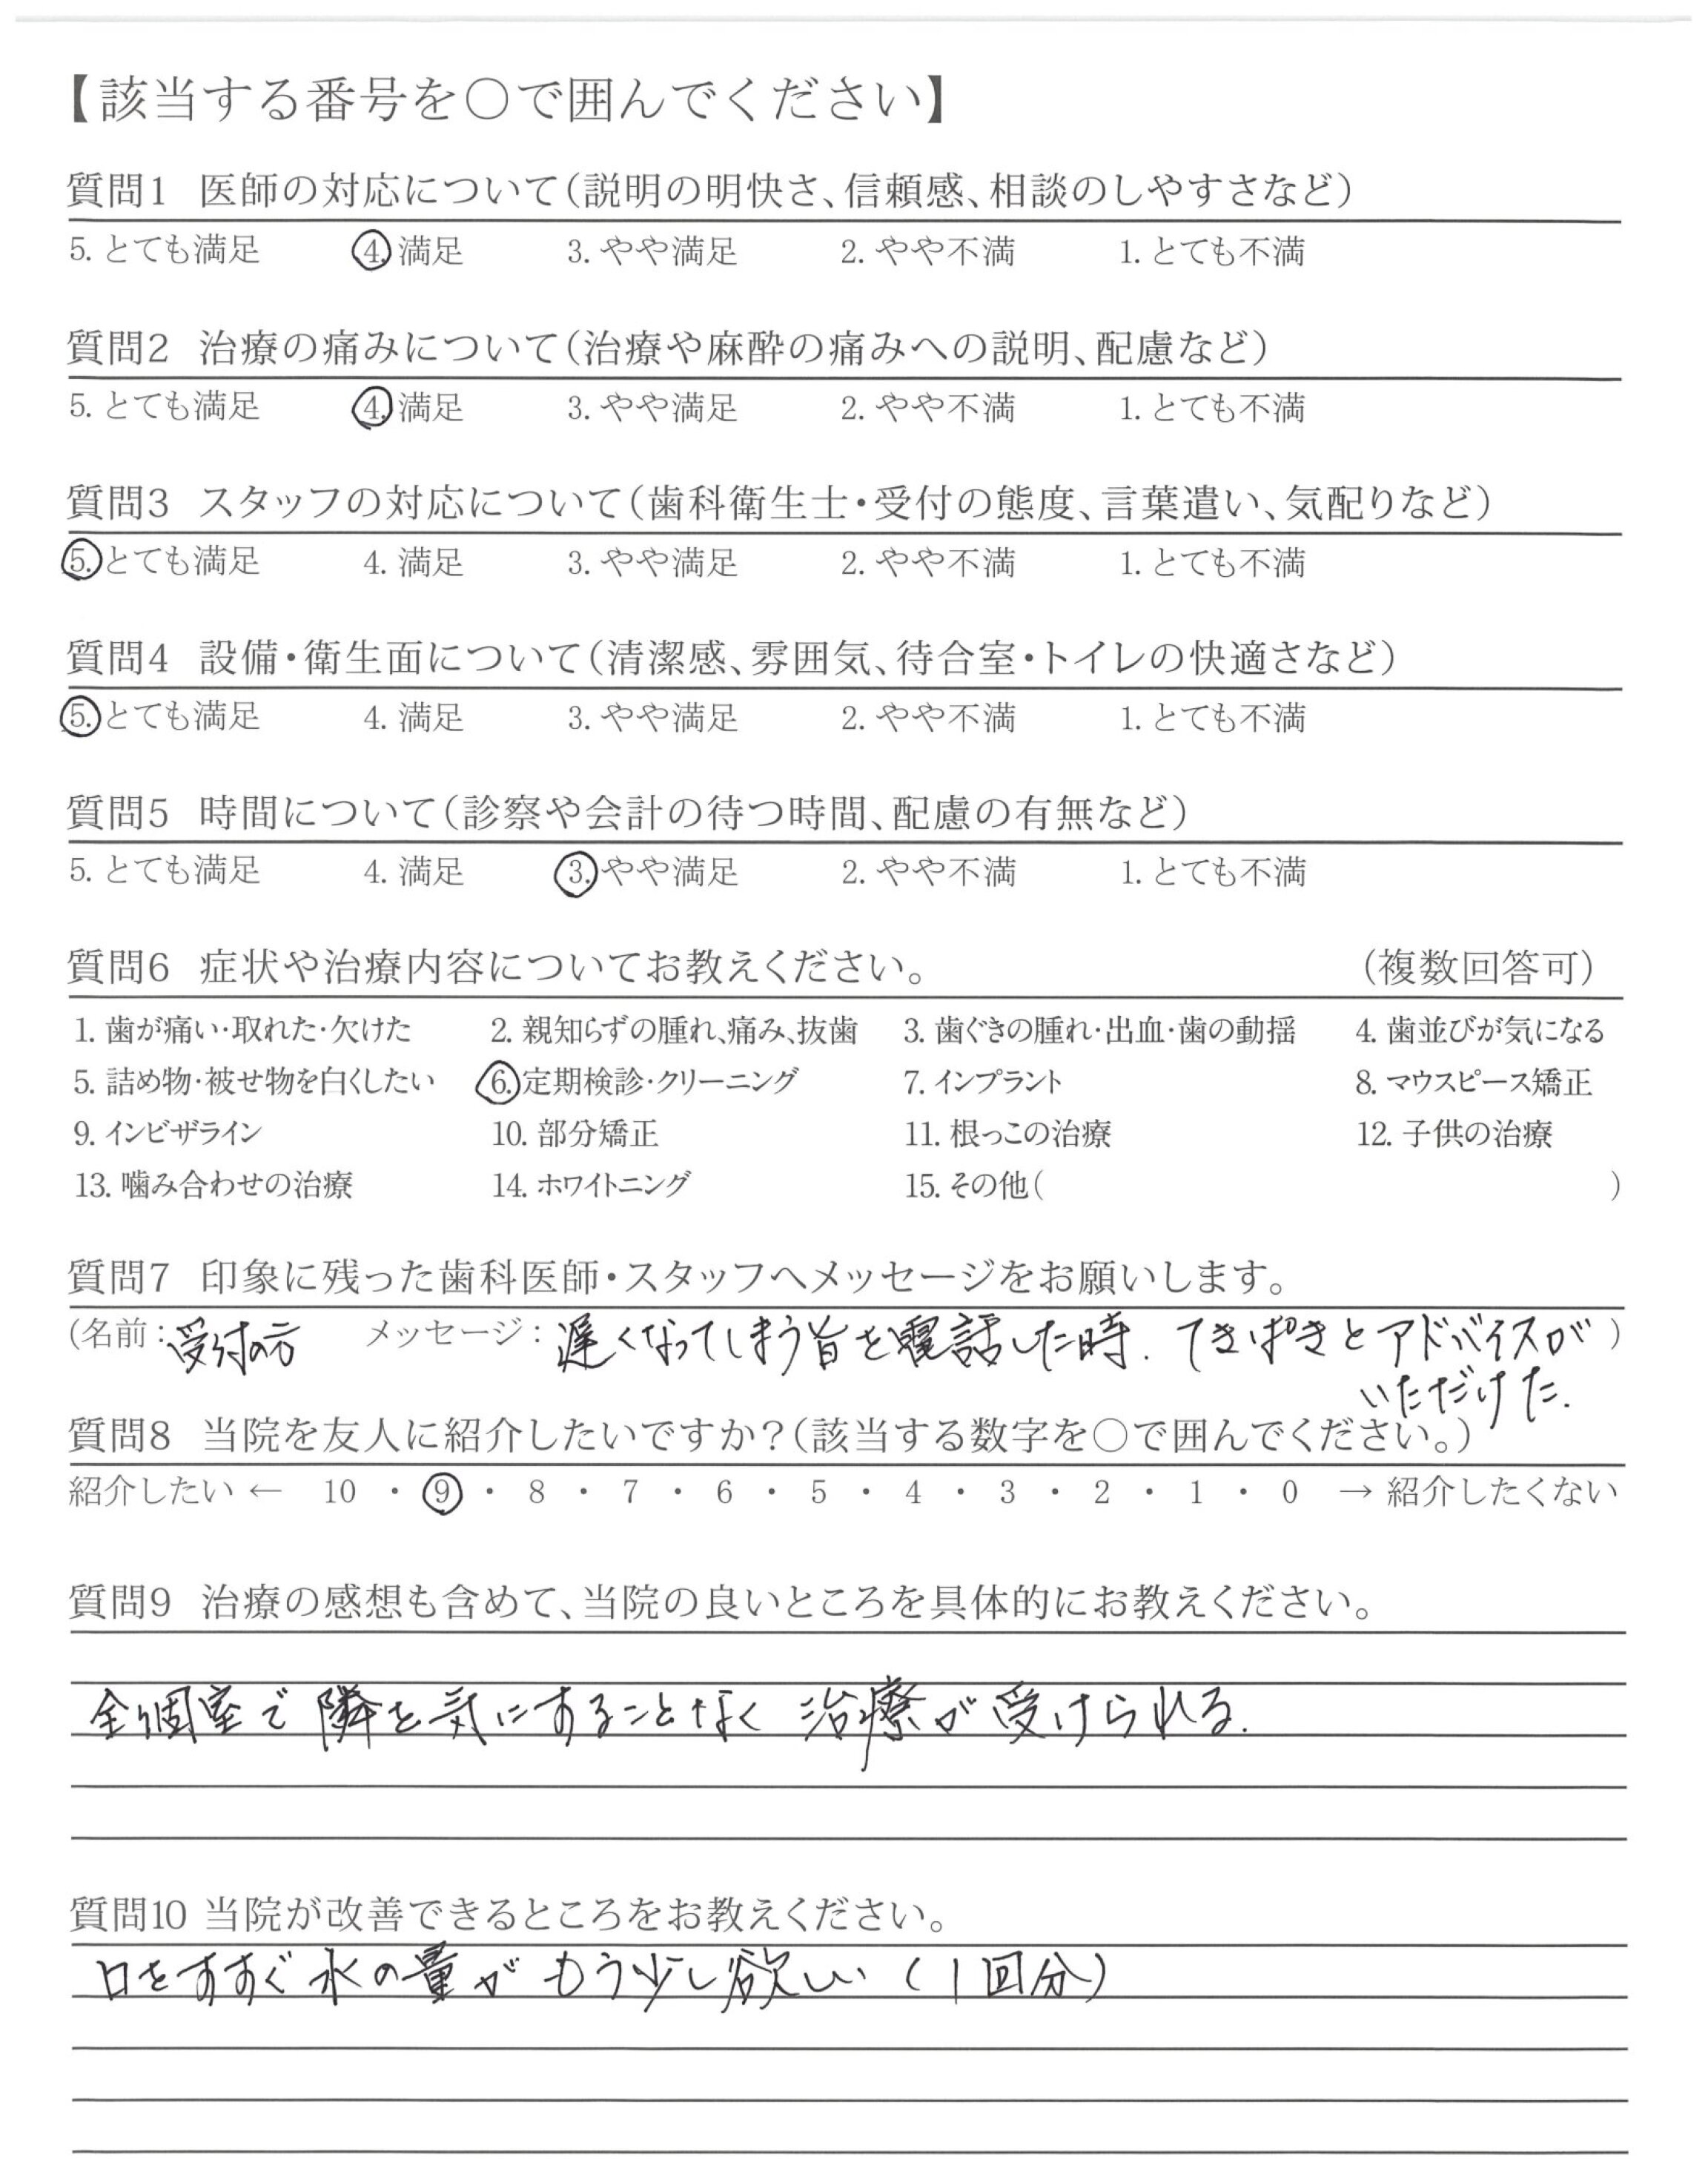 【該当する番号を○で囲んでください】
質問1 医師の対応について(説明の明快さ、信頼感、相談のしやすさなど)
5. とても満足 4. 満足 3. やや満足 2. やや不満 1. とても不満
質問2 治療の痛みについて(治療や麻酔の痛みへの説明、配慮など)
5. とても満足 4. 満足 3. やや満足 2. やや不満 1. とても不満
質問3 スタッフの対応について(歯科衛生士・受付の態度、言葉遣い、気配りなど)
5. とても満足 4. 満足 3. やや満足 2. やや不満 1. とても不満
質問4 設備・衛生面について(清潔感、雰囲気、待合室・トイレの快適さなど)
5. とても満足 4. 満足 3. やや満足 2. やや不満 1. とても不満
質問5 時間について(診察や会計の待つ時間、配慮の有無など)
5. とても満足 4. 満足 3. やや満足 2. やや不満 1. とても不満
質問6 症状や治療内容についてお教えください。 (複数回答可)
1. 歯が痛い・取れた・欠けた 2. 親知らずの腫れ、痛み、抜歯 3. 歯ぐきの腫れ・出血・歯の動揺 4. 歯並びが気になる
5. 詰め物・被せ物を白くしたい 6. 定期検診・クリーニング 7. インプラント 8. マウスピース矯正
9. インビザライン 10. 部分矯正 11. 根っこの治療 12. 子供の治療
13. 噛み合わせの治療 14. ホワイトニング 15. その他( )
質問7 印象に残った歯科医師・スタッフへメッセージをお願いします。
(名前：受付の方 メッセージ：遅くなってしまう旨を電話した時. てきぱきとアドバイスが)
いただけた.
質問8 当院を友人に紹介したいですか?(該当する数字を○で囲んでください。)
紹介したい ← 10 ・ 9 ・ 8 ・ 7 ・ 6 ・ 5 ・ 4 ・ 3 ・ 2 ・ 1 ・ 0 → 紹介したくない
質問9 治療の感想も含めて、当院の良いところを具体的にお教えください。
全個室で隣を気にすることなく治療が受けられる.
質問10 当院が改善できるところをお教えください。
口をすすぐ水の量がもう少し欲しい(1回分)